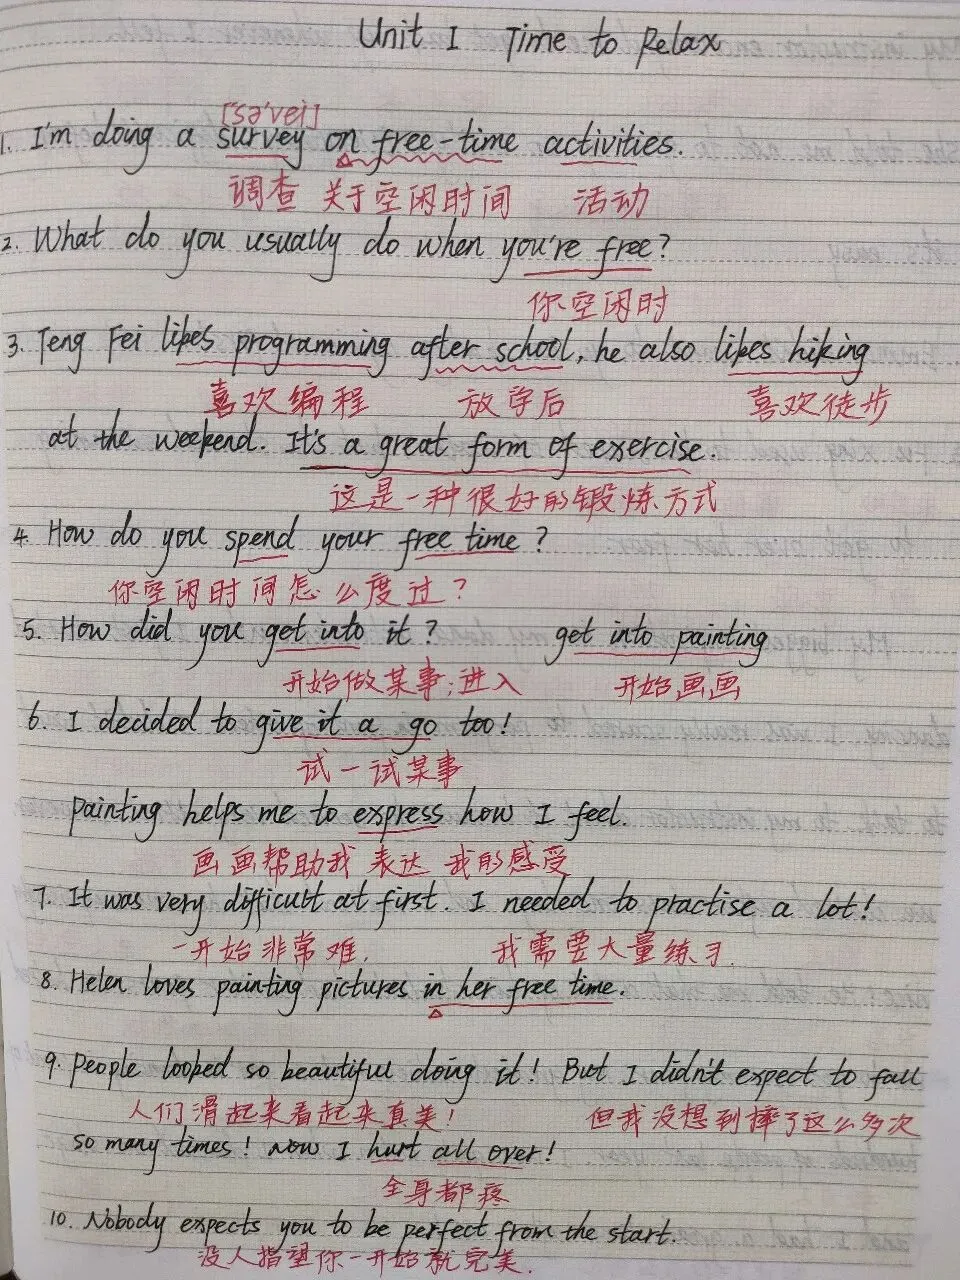 Unit 1 Time to Relax
['sə'vei]
1. I'm doing a survey on free-time activities.
调查 关于空闲时间 活动
2. What do you usually do when you're free?
你空闲时
3. Teng Fei likes programming after school, he also likes hiking
喜欢编程 放学后 喜欢徒步
at the weekend. It's a great form of exercise.
这是一种很好的锻炼方式
4. How do you spend your free time?
你空闲时间怎么度过?
5. How did you get into it? get into painting
开始做某事;进入 开始画画
6. I decided to give it a go too!
试一试某事
painting helps me to express how I feel.
画画帮助我 表达 我的感受
7. It was very difficult at first. I needed to practise a lot!
一开始非常难. 我需要大量练习.
8. Helen loves painting pictures in her free time.
9. People looked so beautiful doing it! But I didn't expect to fall
人们滑起来看起来真美! 但我没想到摔了这么多次
so many times! now I hurt all over!
全身都疼
10. Nobody expects you to be perfect from the start.
没人指望你一开始就完美.